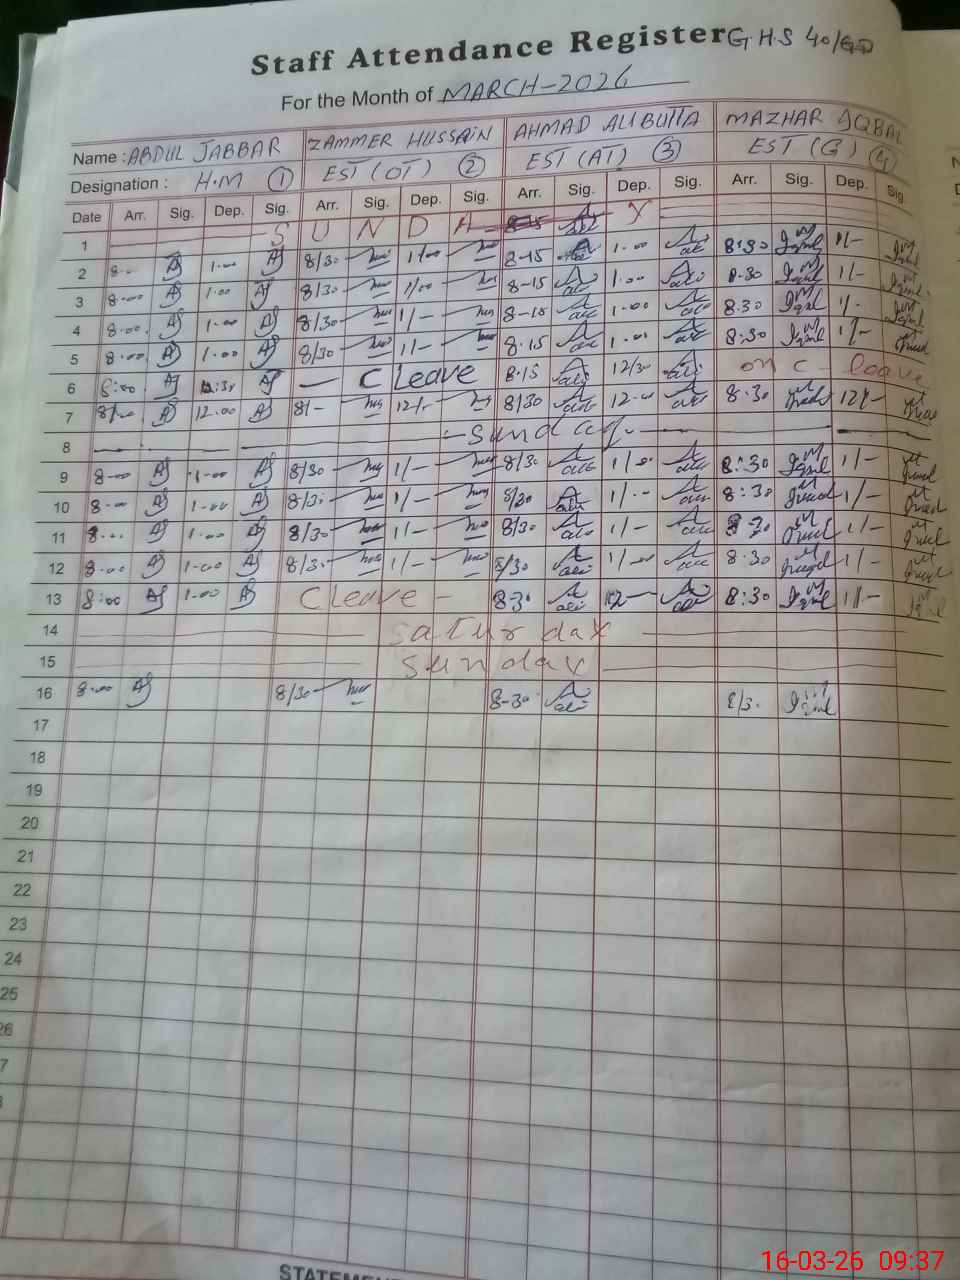 Staff Attendance Register G.H.S 40/GD
For the Month of MARCH-2026
Name : ABDUL JABBAR ZAMMER HUSSAIN AHMAD ALI BUTTA MAZHAR IQBAL
Designation : H.M ① EST (OT) ② EST (AT) ③ EST (G) ④
Date Arr. Sig. Dep. Sig. Arr. Sig. Dep. Sig. Arr. Sig. Dep. Sig. Arr. Sig. Dep. Sig.
1 S U N D A Y
2 8-00 AJ 1-00 AJ 8/30 1/00 8-15 1-00 8:30 Iqbal 1/-
3 8-00 AJ 1-00 AJ 8/30 1/00 8-15 1-00 8-30 Iqbal 1/-
4 8-00 AJ 1-00 AJ 8/30 1/- 8-15 1-00 8.30 Iqbal 1/-
5 8-00 AJ 1-00 AJ 8/30 1/- 8.15 1-00 8:30 Iqbal 1/-
6 8:00 AJ 12:30 AJ C Leave 8.15 12/30 on C- leave
7 8/00 AJ 12.00 AJ 8/- 12/- 8/30 12-00 8.30 12/-
8 Sunday
9 8-00 AJ 1-00 AJ 8/30 1/- 8/30 1/-00 8:30 Iqbal 1/-
10 8-00 AJ 1-00 AJ 8/30 1/- 8/30 1/-- 8:30 1/-
11 8-00 AJ 1-00 AJ 8/30 1/- 8/30 1/- 8-30 1/-
12 8-00 AJ 1-00 AJ 8/30 1/- 8/30 1/-00 8.30 1/-
13 8:00 AJ 1-00 AJ C Leave - 8-30 12- 8:30 Iqbal 1/-
14 Saturday
15 Sunday
16 8-00 AJ 8/30 8-30 8/30 Iqbal
17
18
19
20
21
22
23
24
25
26
7
STATEM
16-03-26 09:37